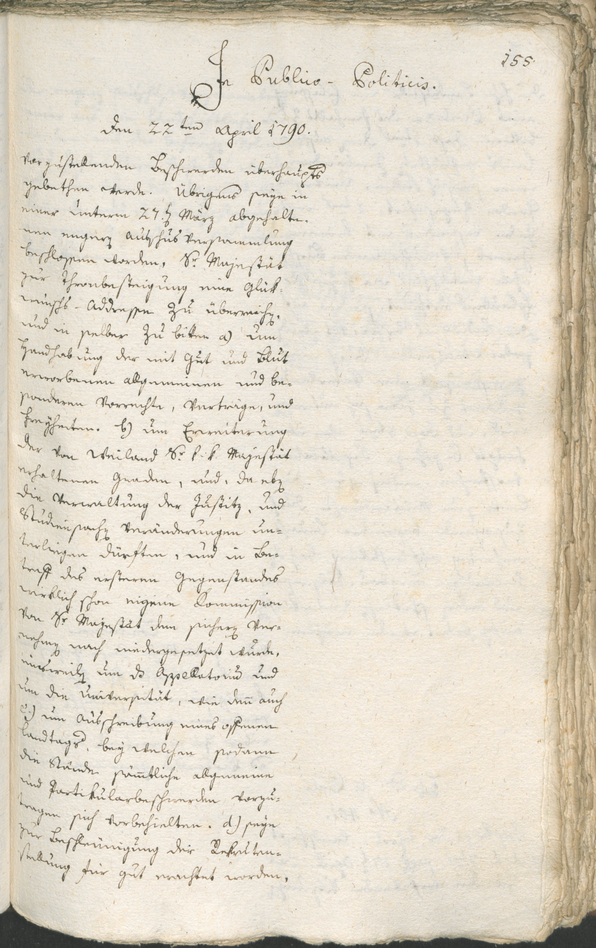 155.
In Publico-Politicis.
den 22ten April 1790.
vorzustellenden Beschwerden überhaupts
gebethen werde. Übrigens seye in
einer unterm 27t März abgehalte-
nen engern Ausschusversammlung
beschlossen worden, Sr Majestät
zur Thronbesteigung eine Glük-
wunschs-Addresse zu überreichen,
und in selber zu biten a) um
Handhabung der mit Gut und Blut
erworbenen allgemeinen und be-
sonderen Vorrechte, Verträge, und
Freyheiten. b) um Erweiterung
der von Weiland Sr k. k. Majestät
erhaltenen Gnaden, und, da eben
die Verwaltung der Justitz, und
Studiensachen Veränderungen un-
terliegen dürften, und in Be-
treff des ersteren Gegenstandes
wirklich schon eigene Commission
von Sr Majestät dem sichern Ver-
nehmen nach niedergesetzet wurde,
einsweilen um das Appellatorium und
um die Universität, wie dann auch
c) um Ausschreibung eines offenen
Landtags, bey welchem sodann
die Stände sämtliche allgemeine
und Partikularbeschwerden vorzu-
tragen sich vorbehielten. d) seye
zur Beschleunigung der Rekruten-
stellung für gut erachtet worden,